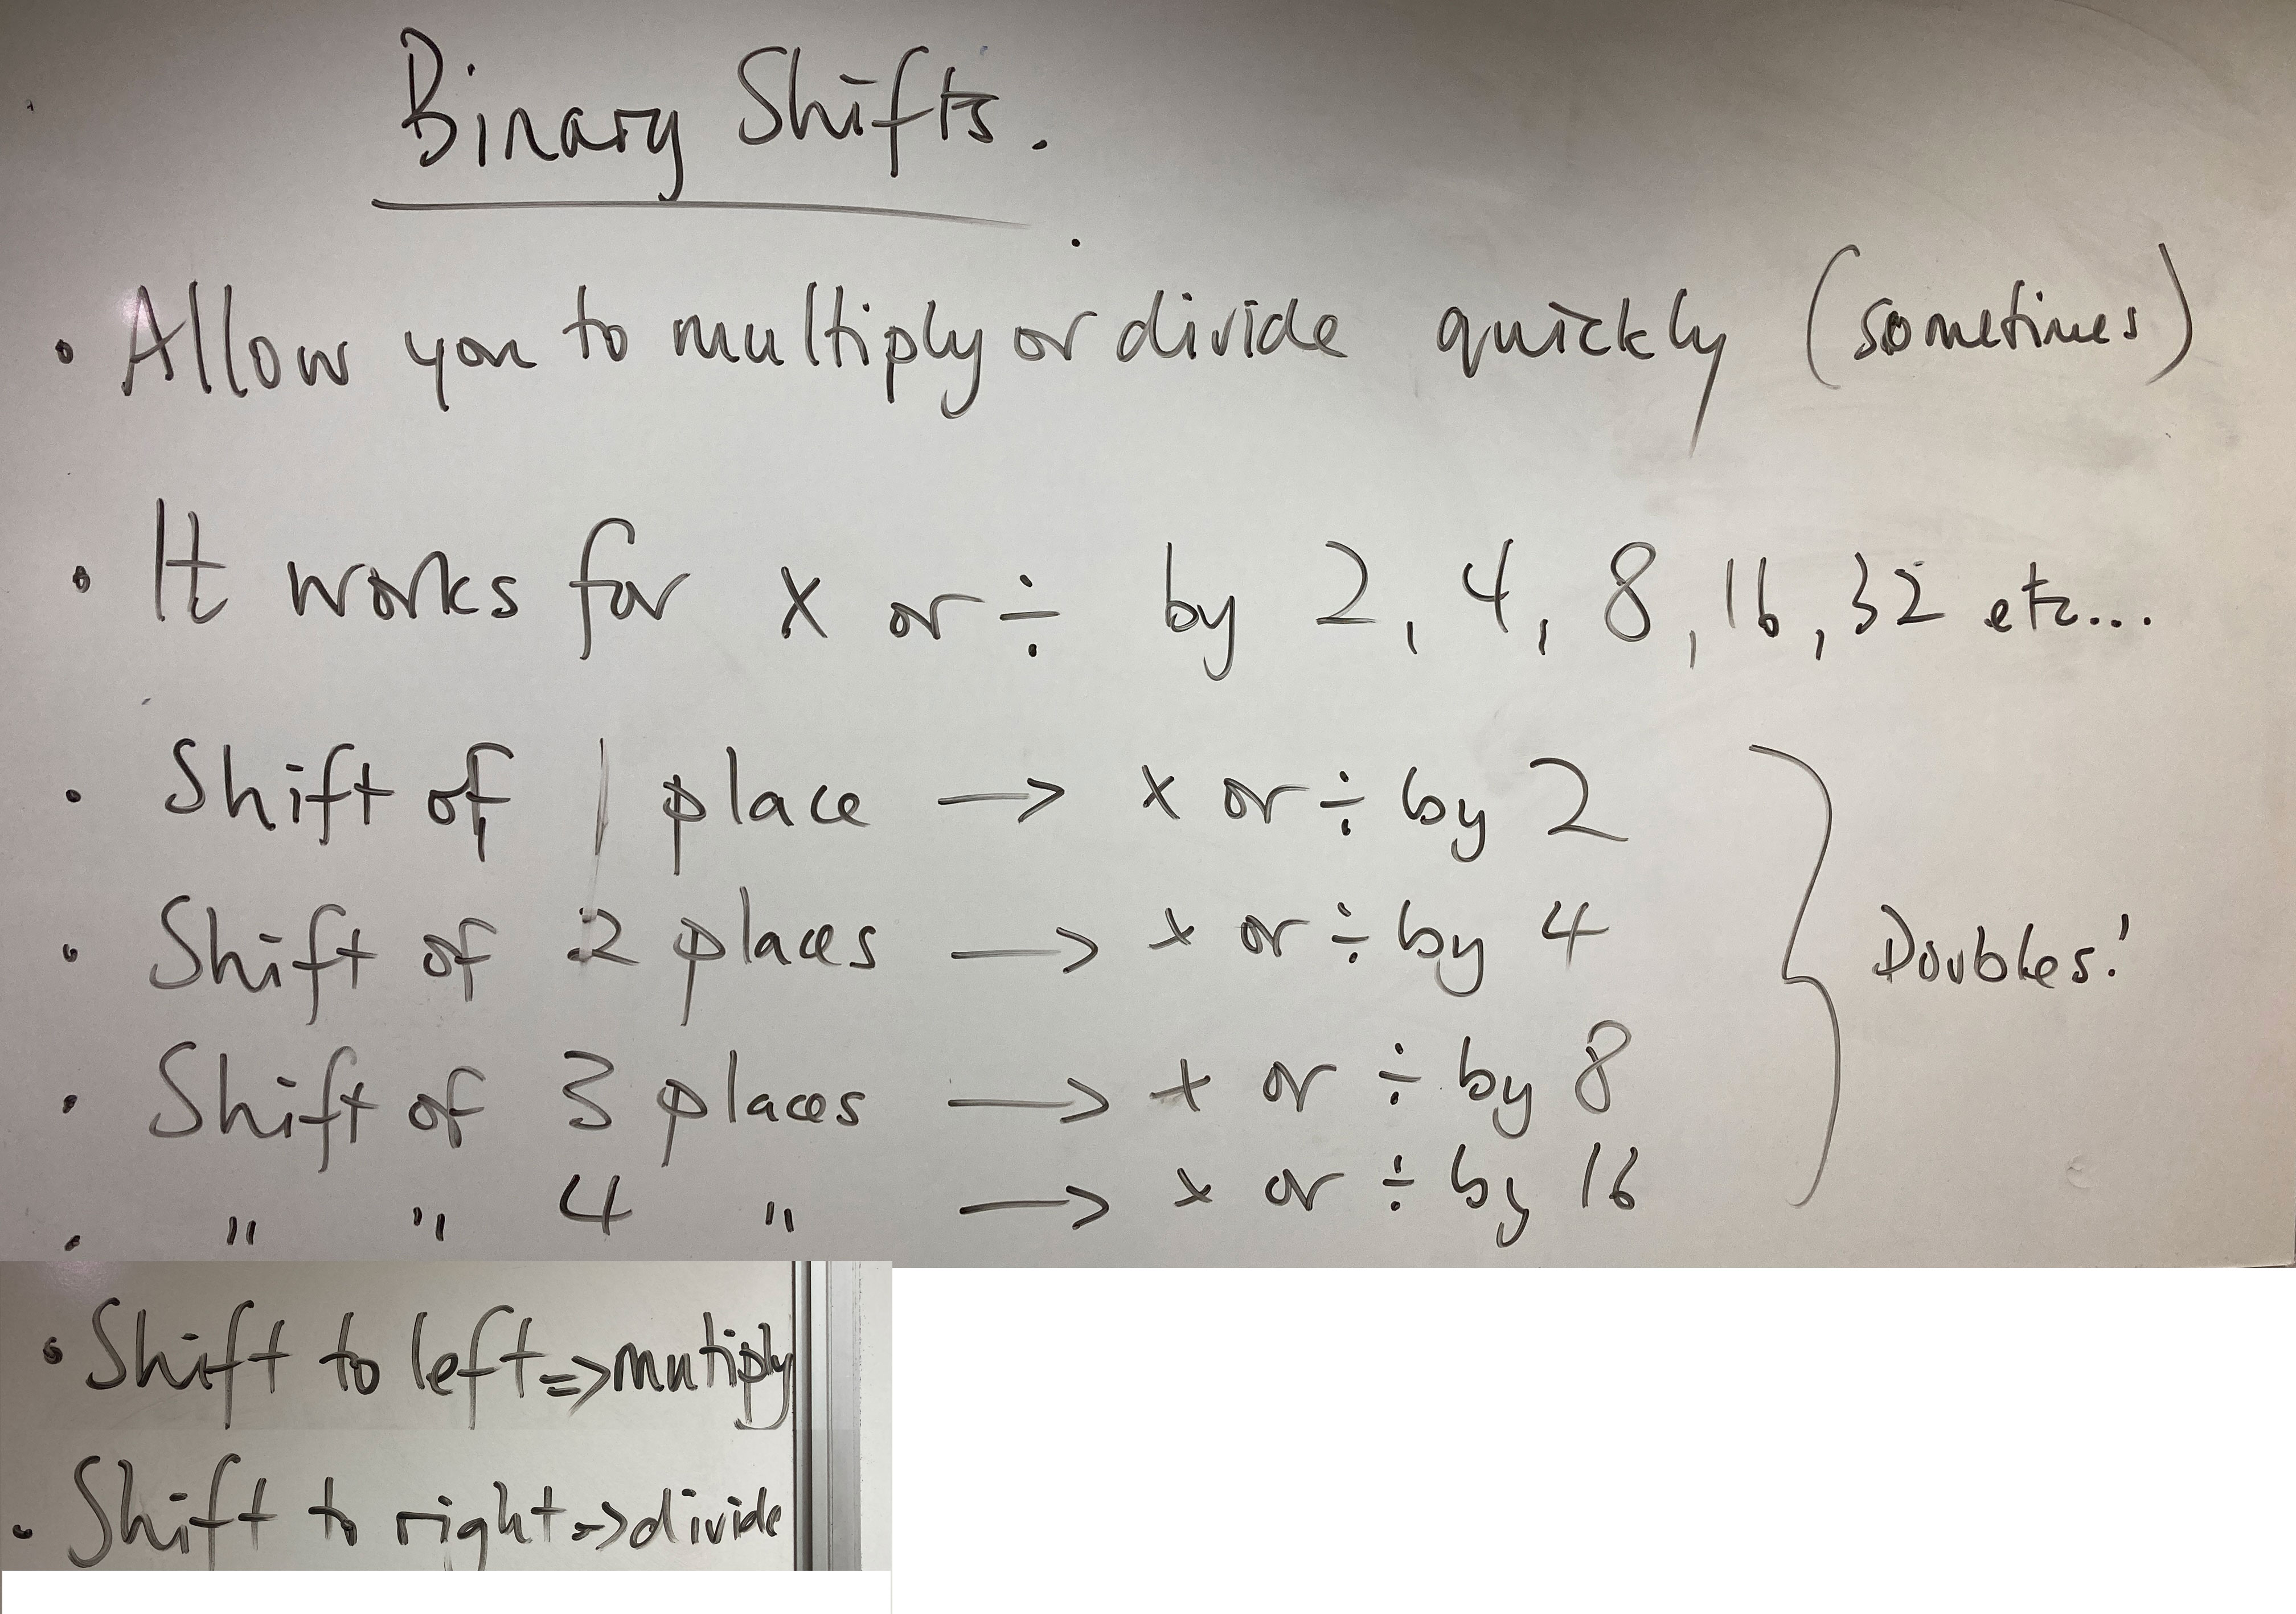 Binary Shifts.
• Allow you to multiply or divide quickly (sometimes)
• It works for x or ÷ by 2, 4, 8, 16, 32 etc...
• Shift of 1 place → x or ÷ by 2
• Shift of 2 places → x or ÷ by 4
Doubles!
• Shift of 3 places → x or ÷ by 8
• " " 4 " → x or ÷ by 16
• Shift to left => mutiply
• Shift to right => divide